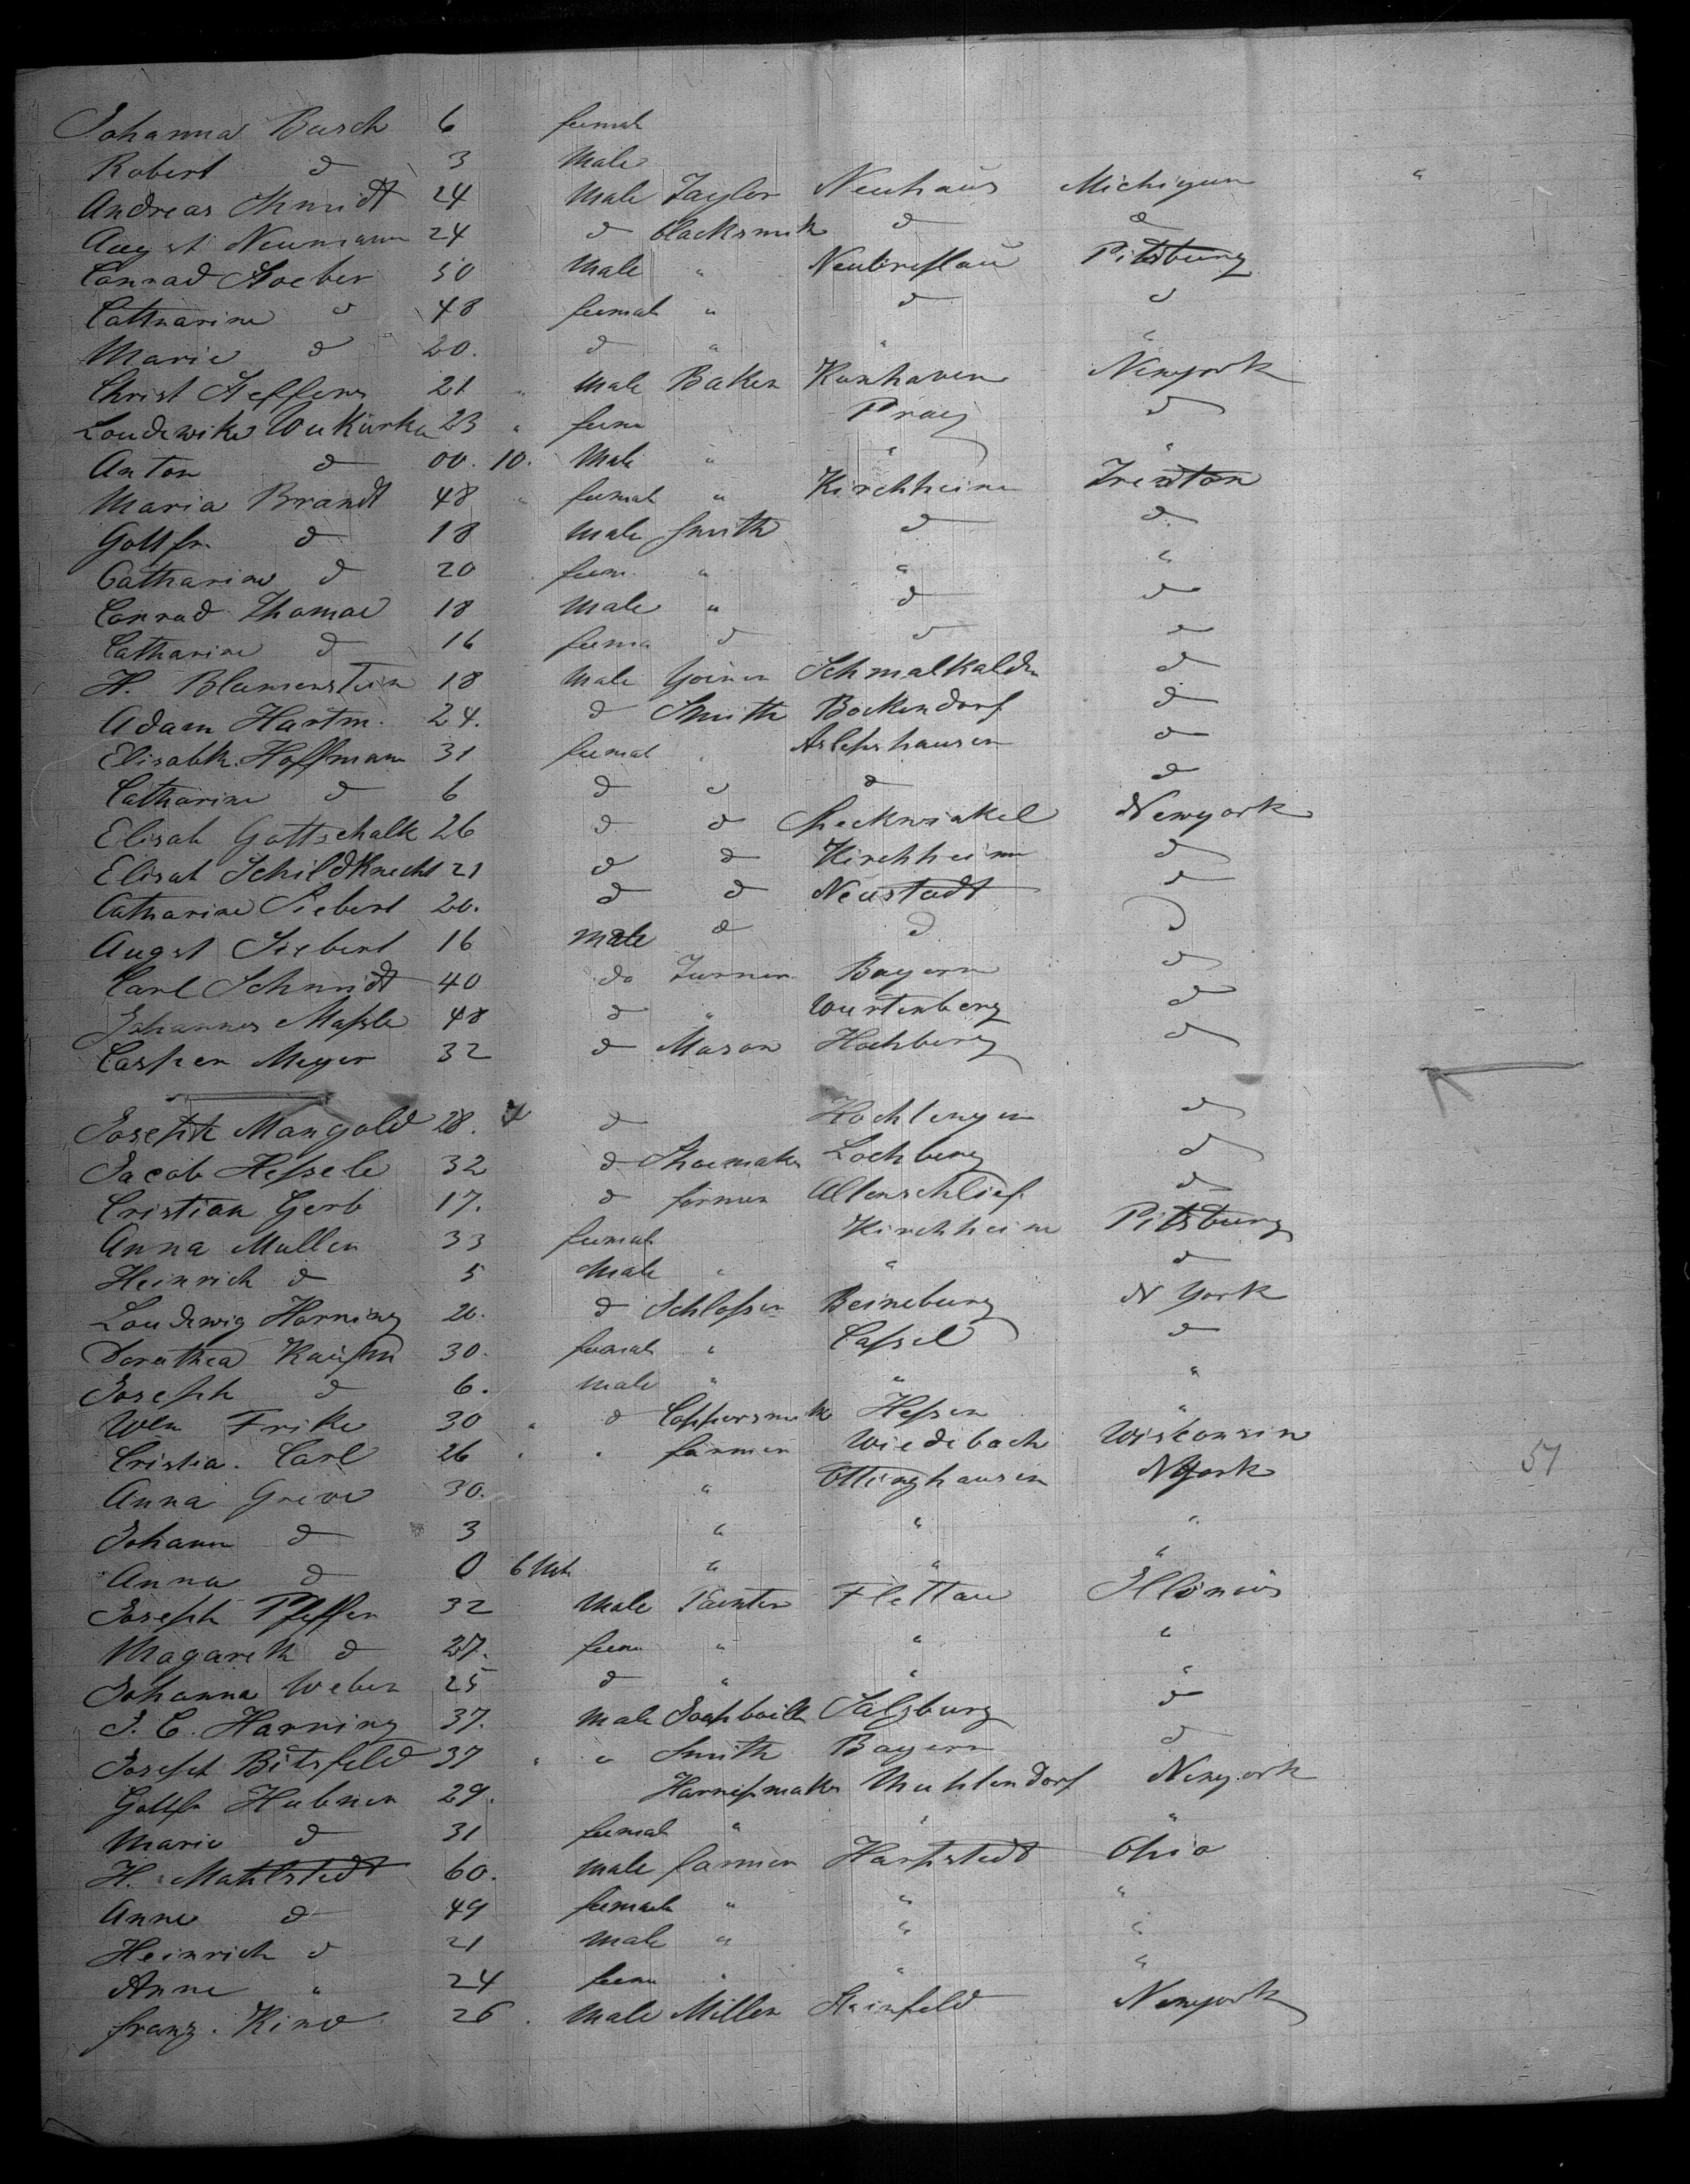 Johanna Busch 6 female
Robert d 3 Male
Andreas Schmidt 24 Male Taylor Neuhaus Michigan "
August Neumann 24 d blacksmith d d
Conrad Stoeber 50 Male " Neubreslau Pittsburg
Catharine d 48 female " d d
Marie d 20. d " " "
Christ Steffens 21 Male Baker Kuxhaven Newyork
Loudewike 23 " fem Prag d
Anton d 00. 10. Male " " "
Maria Brandt 48 " female " Kirchheim Trenton
Gottfr. d 18 Male Smith d d
Catharine d 20 fem. " " "
Conrad Thomae 18 Male " d d
Catharine d 16 fema d d d
H. Blumenstein 18 Male Goiner Schmalkalden d
Adam Hartm. 24. d Smith Bockendorf d
Elisabth. Hoffmann 31 female " d
Catharine d 6 d d d d
Elisab Gottschalk 26 d d Speckwinkel Newyork
Elisab Schildknecht 21 d d Kirchheim d
Catharine Siebert 20. d d Neustadt d
Augst Siebert 16 male d d d
Carl Schmidt 40 do Turner Bayern d
Johannes Massle 48 d " Wurtenberg d
Casper Meyer 32 d Mason Hochberg d
Joseph Mangold 28. d Hochlengen d
Jacob Hessele 32 d Shoemaker Lochberg d
Cristian Gerb 17. d farmer Altenschlief d
Anna Muller 33 female Kirchheim Pitsburg
Heinrich d 5 Male " " d
Loudewig Horning 20. d Schlosser Beineburg N York
Dorothea 30. female " Cassel d
Joseph d 6. male " " "
Wlm Frike 30 " d Coppersmith Hessen "
Cristia. Carl 26 " " farmer Wiedibach Wisconsin
Anna Greve 30. " Ottinghausen NYork 51
Johann d 3 " " "
Anna d 0 6 Mt. " " "
Joseph Pfeffer 32 Male Painter Flettau Illinois
Magareth d 27. fem " " "
Johanna Weber 25 d " " "
J. C. Harning 37. Male Soapboiller Salzburg d
Joseph Bitsfeld 37 " " Smith Bayern d
Gottfr Hubner 29. Harnissmaker Muhlendorf Newyork
Marie d 31 female " " "
H. Mahlstedt 60. male farmer Harpstedt Ohio
Anne d 49 female " " "
Heinrich d 21 Male " " "
Anne " 24 fem " " "
franz. Kind 26. Male Miller Steinfeld Newyork